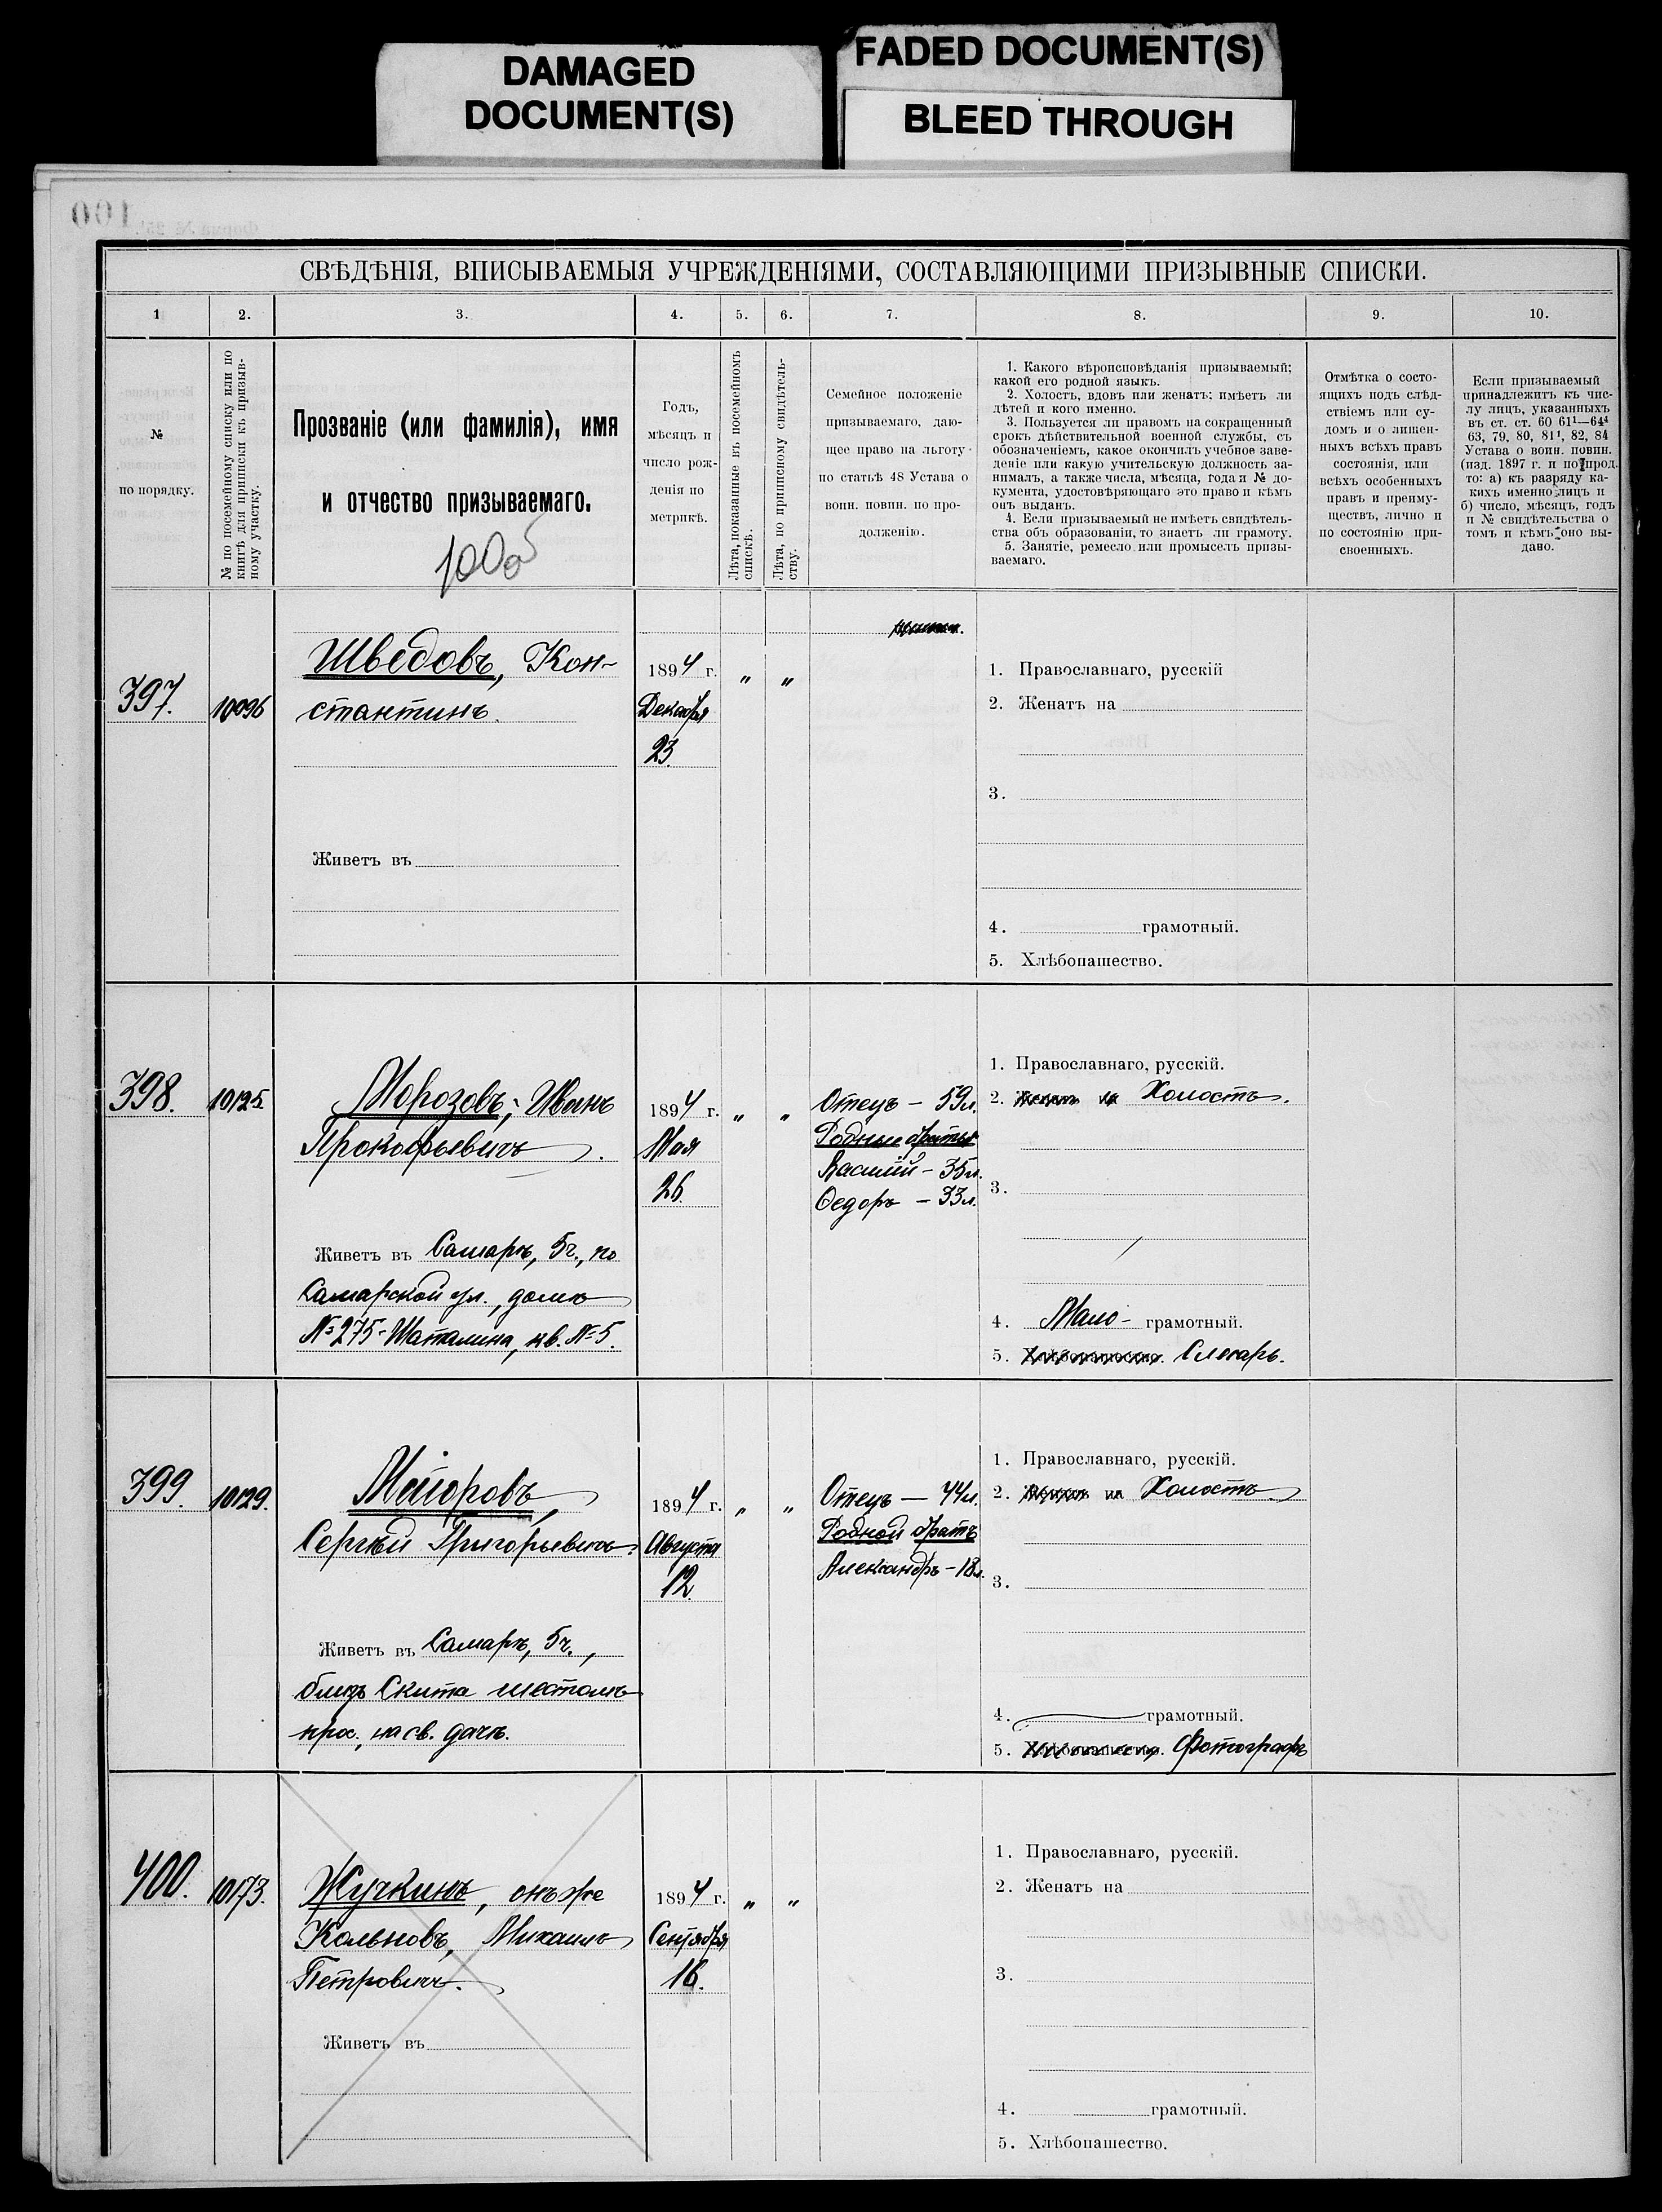 DAMAGED
DOCUMENT(S)
FADED DOCUMENT(S)
BLEED THROUGH
100
СВѢДѢНІЯ, ВПИСЫВАЕМЫЯ УЧРЕЖДЕНІЯМИ, СОСТАВЛЯЮЩИМИ ПРИЗЫВНЫЕ СПИСКИ.
1 2. 3. 4. 5. 6. 7. 8. 9. 10.
№
по порядку.
№ по посемейному списку или по
книгѣ для приписки къ призыв-
ному участку.
Прозваніе (или фамилія), имя
и отчество призываемаго.
Годъ,
мѣсяцъ и
число рож-
денія по
метрикѣ.
Лѣта, показанные въ посемейномъ
спискѣ.
Лѣта, по приписному свидѣтель-
ству.
Семейное положеніе
призываемаго, даю-
щее право на льготу
по статьѣ 48 Устава о
воин. повин. по про-
долженію.
1. Какого вѣроисповѣданія призываемый;
какой его родной языкъ.
2. Холостъ, вдовъ или женатъ; имѣетъ ли
дѣтей и кого именно.
3. Пользуется ли правомъ на сокращенный
срокъ дѣйствительной военной службы, съ
обозначеніемъ, какое окончилъ учебное заве-
деніе или какую учительскую должность за-
нималъ, а также числа, мѣсяца, года и № до-
кумента, удостовѣряющаго это право и кѣмъ
онъ выданъ.
4. Если призываемый не имѣетъ свидѣтель-
ства объ образованіи, то знаетъ ли грамоту.
5. Занятіе, ремесло или промыселъ призы-
ваемаго.
Отмѣтка о состо-
ящихъ подъ слѣд-
ствіемъ или су-
домъ и о лишен-
ныхъ всѣхъ правъ
состоянія, или
всѣхъ особенныхъ
правъ и преиму-
ществъ, лично и
по состоянію при-
своенныхъ.
Если призываемый
принадлежитъ къ чис-
лу лицъ, указанныхъ
въ ст. ст. 60 61¹—64⁴
63, 79, 80, 81¹, 82, 84
Устава о воин. повин.
(изд. 1897 г. и по прод.
то: а) къ разряду ка-
кихъ именно лицъ и
б) число, мѣсяцъ, годъ
и № свидѣтельства о
томъ и кѣмъ оно вы-
дано.
397. 10096
Шведовъ, Кон-
стантинъ.
1894 г.
Декабря
23.
" "
Живетъ въ
1. Православнаго, русскій
2. Женатъ на
3.
4. грамотный.
5. Хлѣбопашество.
398. 10125.
Морозовъ, Иванъ
Прокофьевичъ.
1894 г.
Мая
26.
" "
Живетъ въ Самарѣ, 5ч., по
Самарской ул., домъ
№ 275-Шаталина, кв. № 5.
Отецъ – 59л.
Родные братья
Василій – 35л.
Ѳедоръ – 33л.
1. Православнаго, русскій.
2. Женатъ на Холостъ.
3.
4. Мало- грамотный.
5. Хлѣбопашество. Слесарь.
399. 10129.
Маіоровъ,
Сергѣй Григорьевичъ.
1894 г.
Августа
12.
" "
Живетъ въ Самарѣ, 5ч.,
близъ Скита шестомъ
прос., на св. дачѣ.
Отецъ — 44л.
Родной братъ
Александръ – 18л.
1. Православнаго, русскій.
2. Женатъ на Холостъ.
3.
4. грамотный.
5. Хлѣбопашество. Фотографъ
400. 10173.
Жучкинъ, онъ же
Кольновъ, Михаилъ
Петровичъ.
1894 г.
Сентября
16.
" "
Живетъ въ
1. Православнаго, русскій.
2. Женатъ на
3.
4. грамотный.
5. Хлѣбопашество.